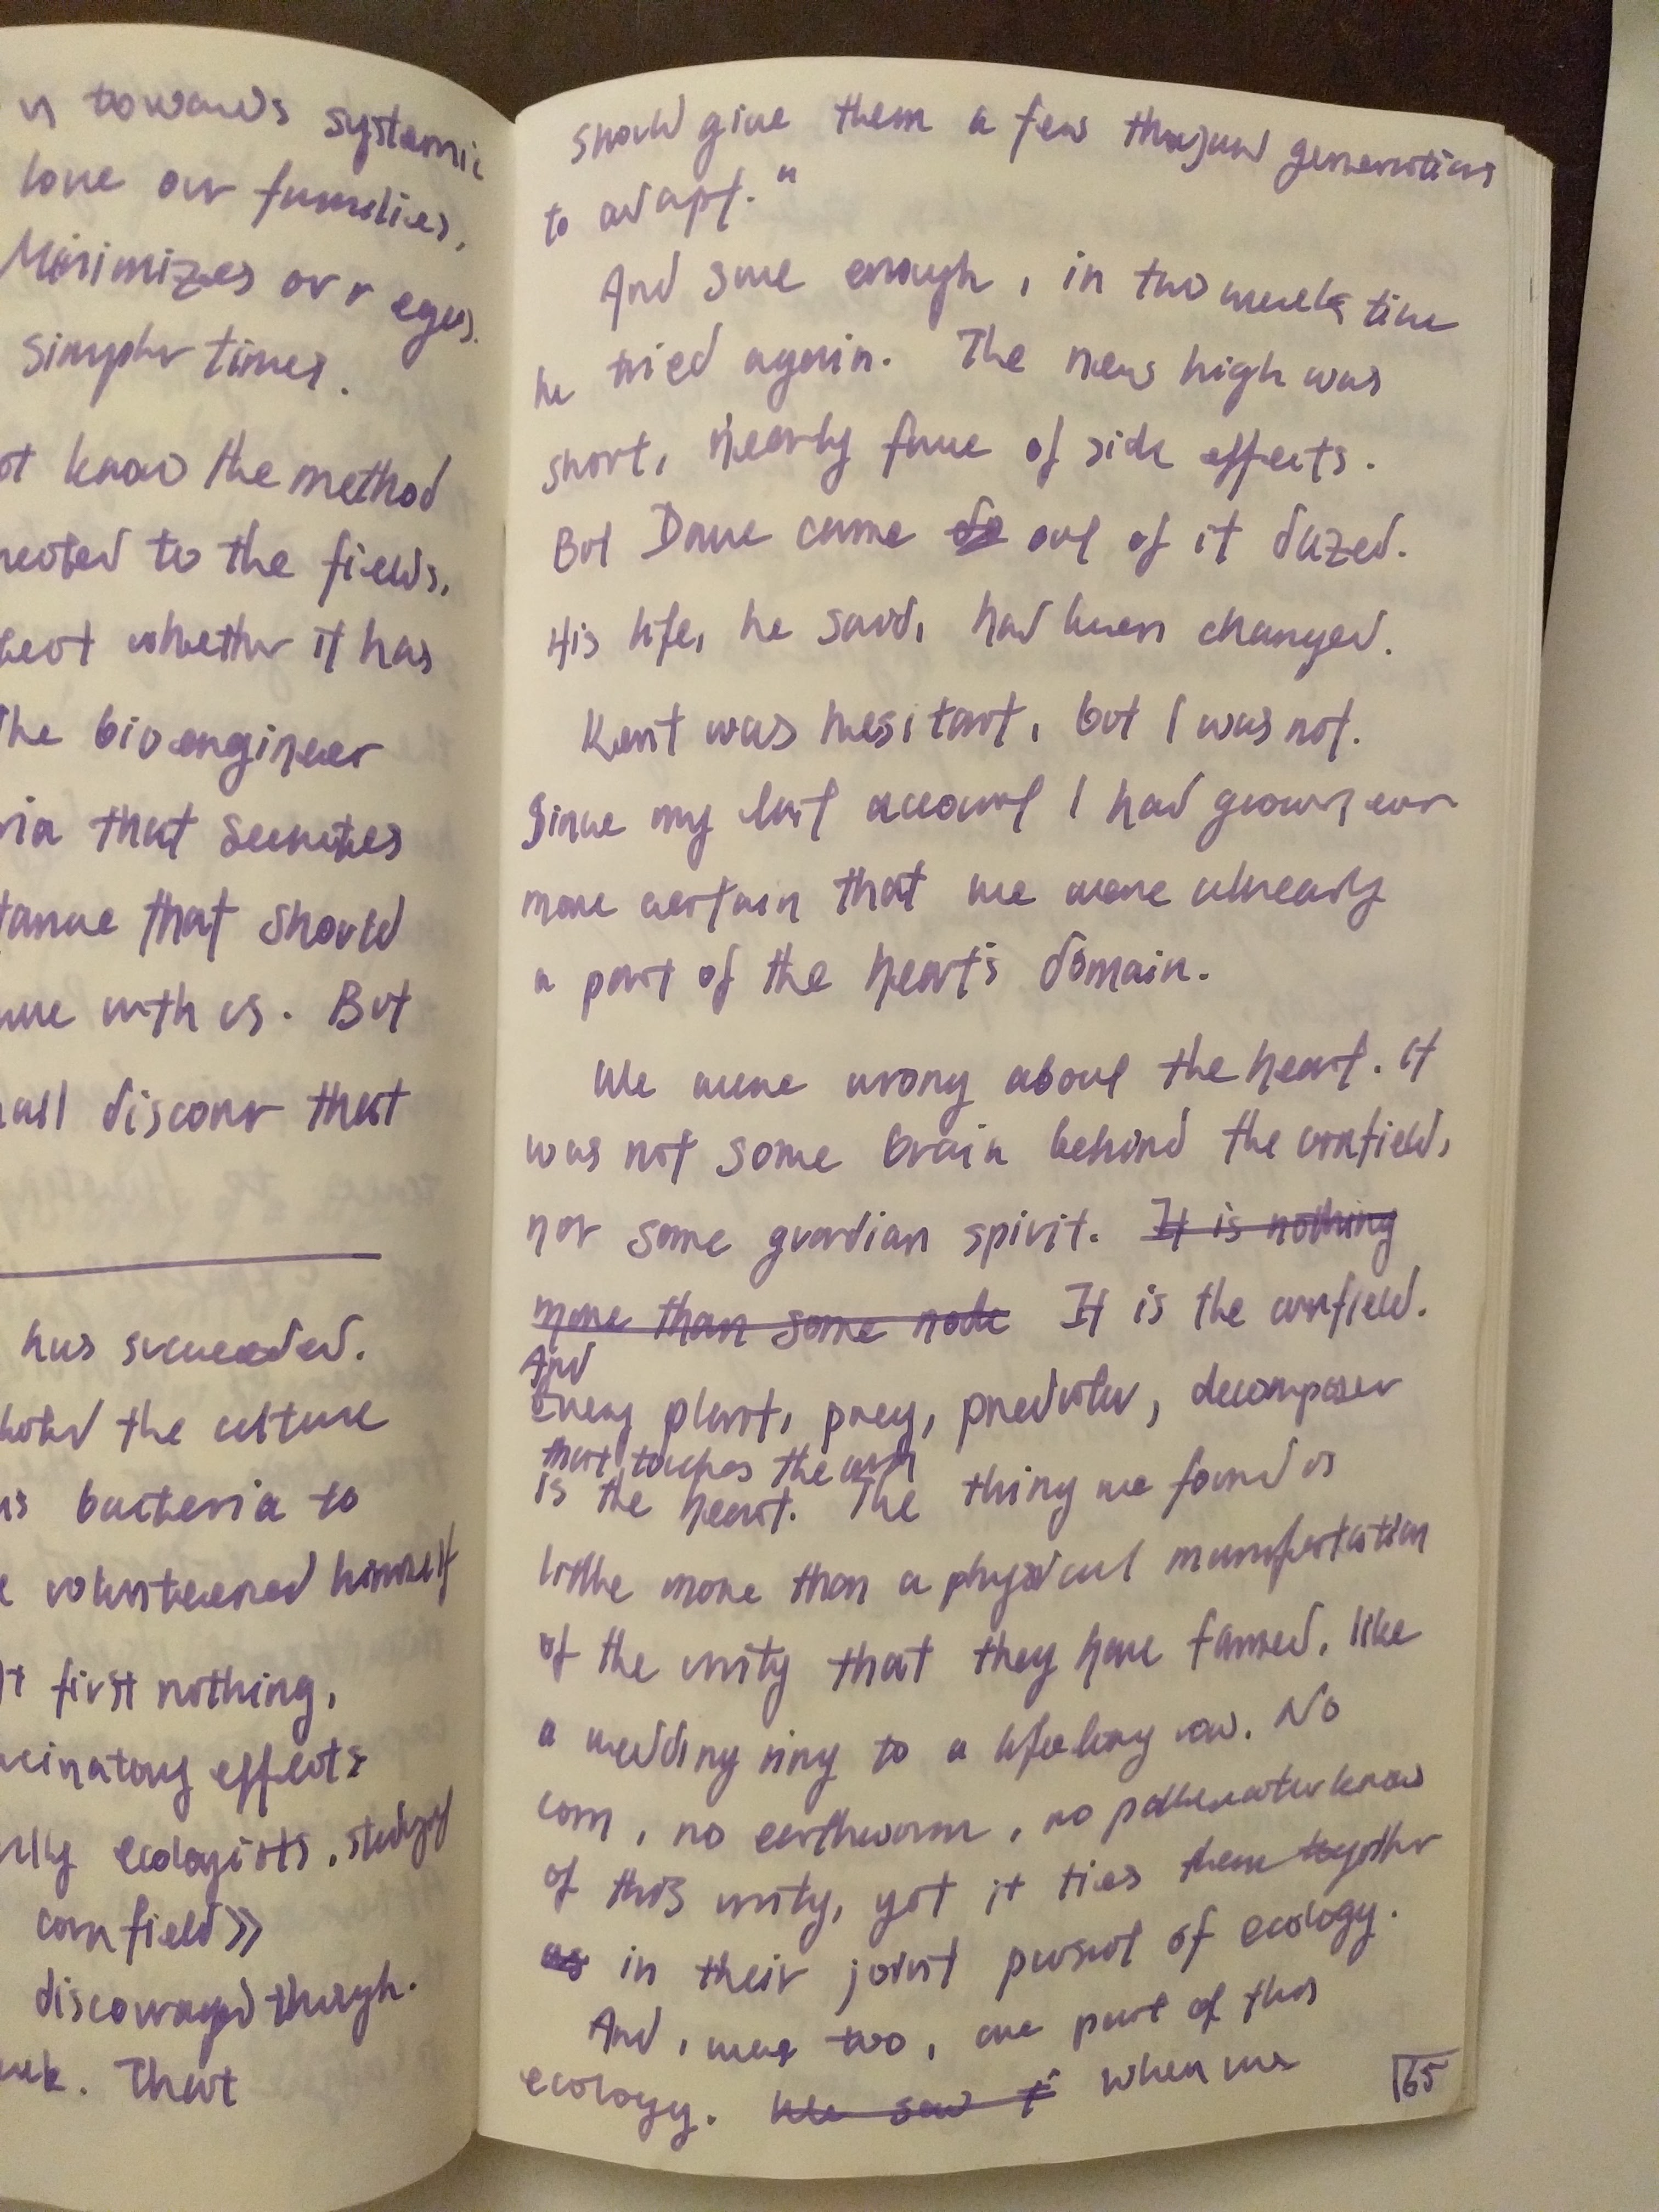 n towards systemic
love our families,
Minimizes our egos.
simpler times.
ot know the method
nected to the fields,
whether it has
The bioengineer
ria that secretes
tance that should
with us. But
all discover that
has succeeded.
the culture
bacteria to
volunteered himself
At first nothing,
cinatory effects
ecologists, study
cornfield»
discouraged though.
That
should give them a few thousand generations
to adapt."
And sure enough, in two weeks time
he tried again. The new high was
short, nearly free of side effects.
But Dave came do out of it dazed.
His life, he said, had been changed.
Kent was hesitant, but I was not.
Since my last account I had grown ever
more certain that we were already
a part of the heart's domain.
We were wrong about the heart. It
was not some brain behind the cornfield,
nor some guardian spirit. It is nothing
more than some node It is the cornfield.
And
Every plant, prey, predator, decomposer
that touches the corn
is the heart. The thing we found is
little more than a physical manifestation
of the unity that they have formed, like
a wedding ring to a lifelong vow. No
corn, no earthworm, no pollenator know
of this unity, yet it ties them together
as in their joint pursuit of ecology.
And, we too, are part of this
ecology. We saw it when we
165